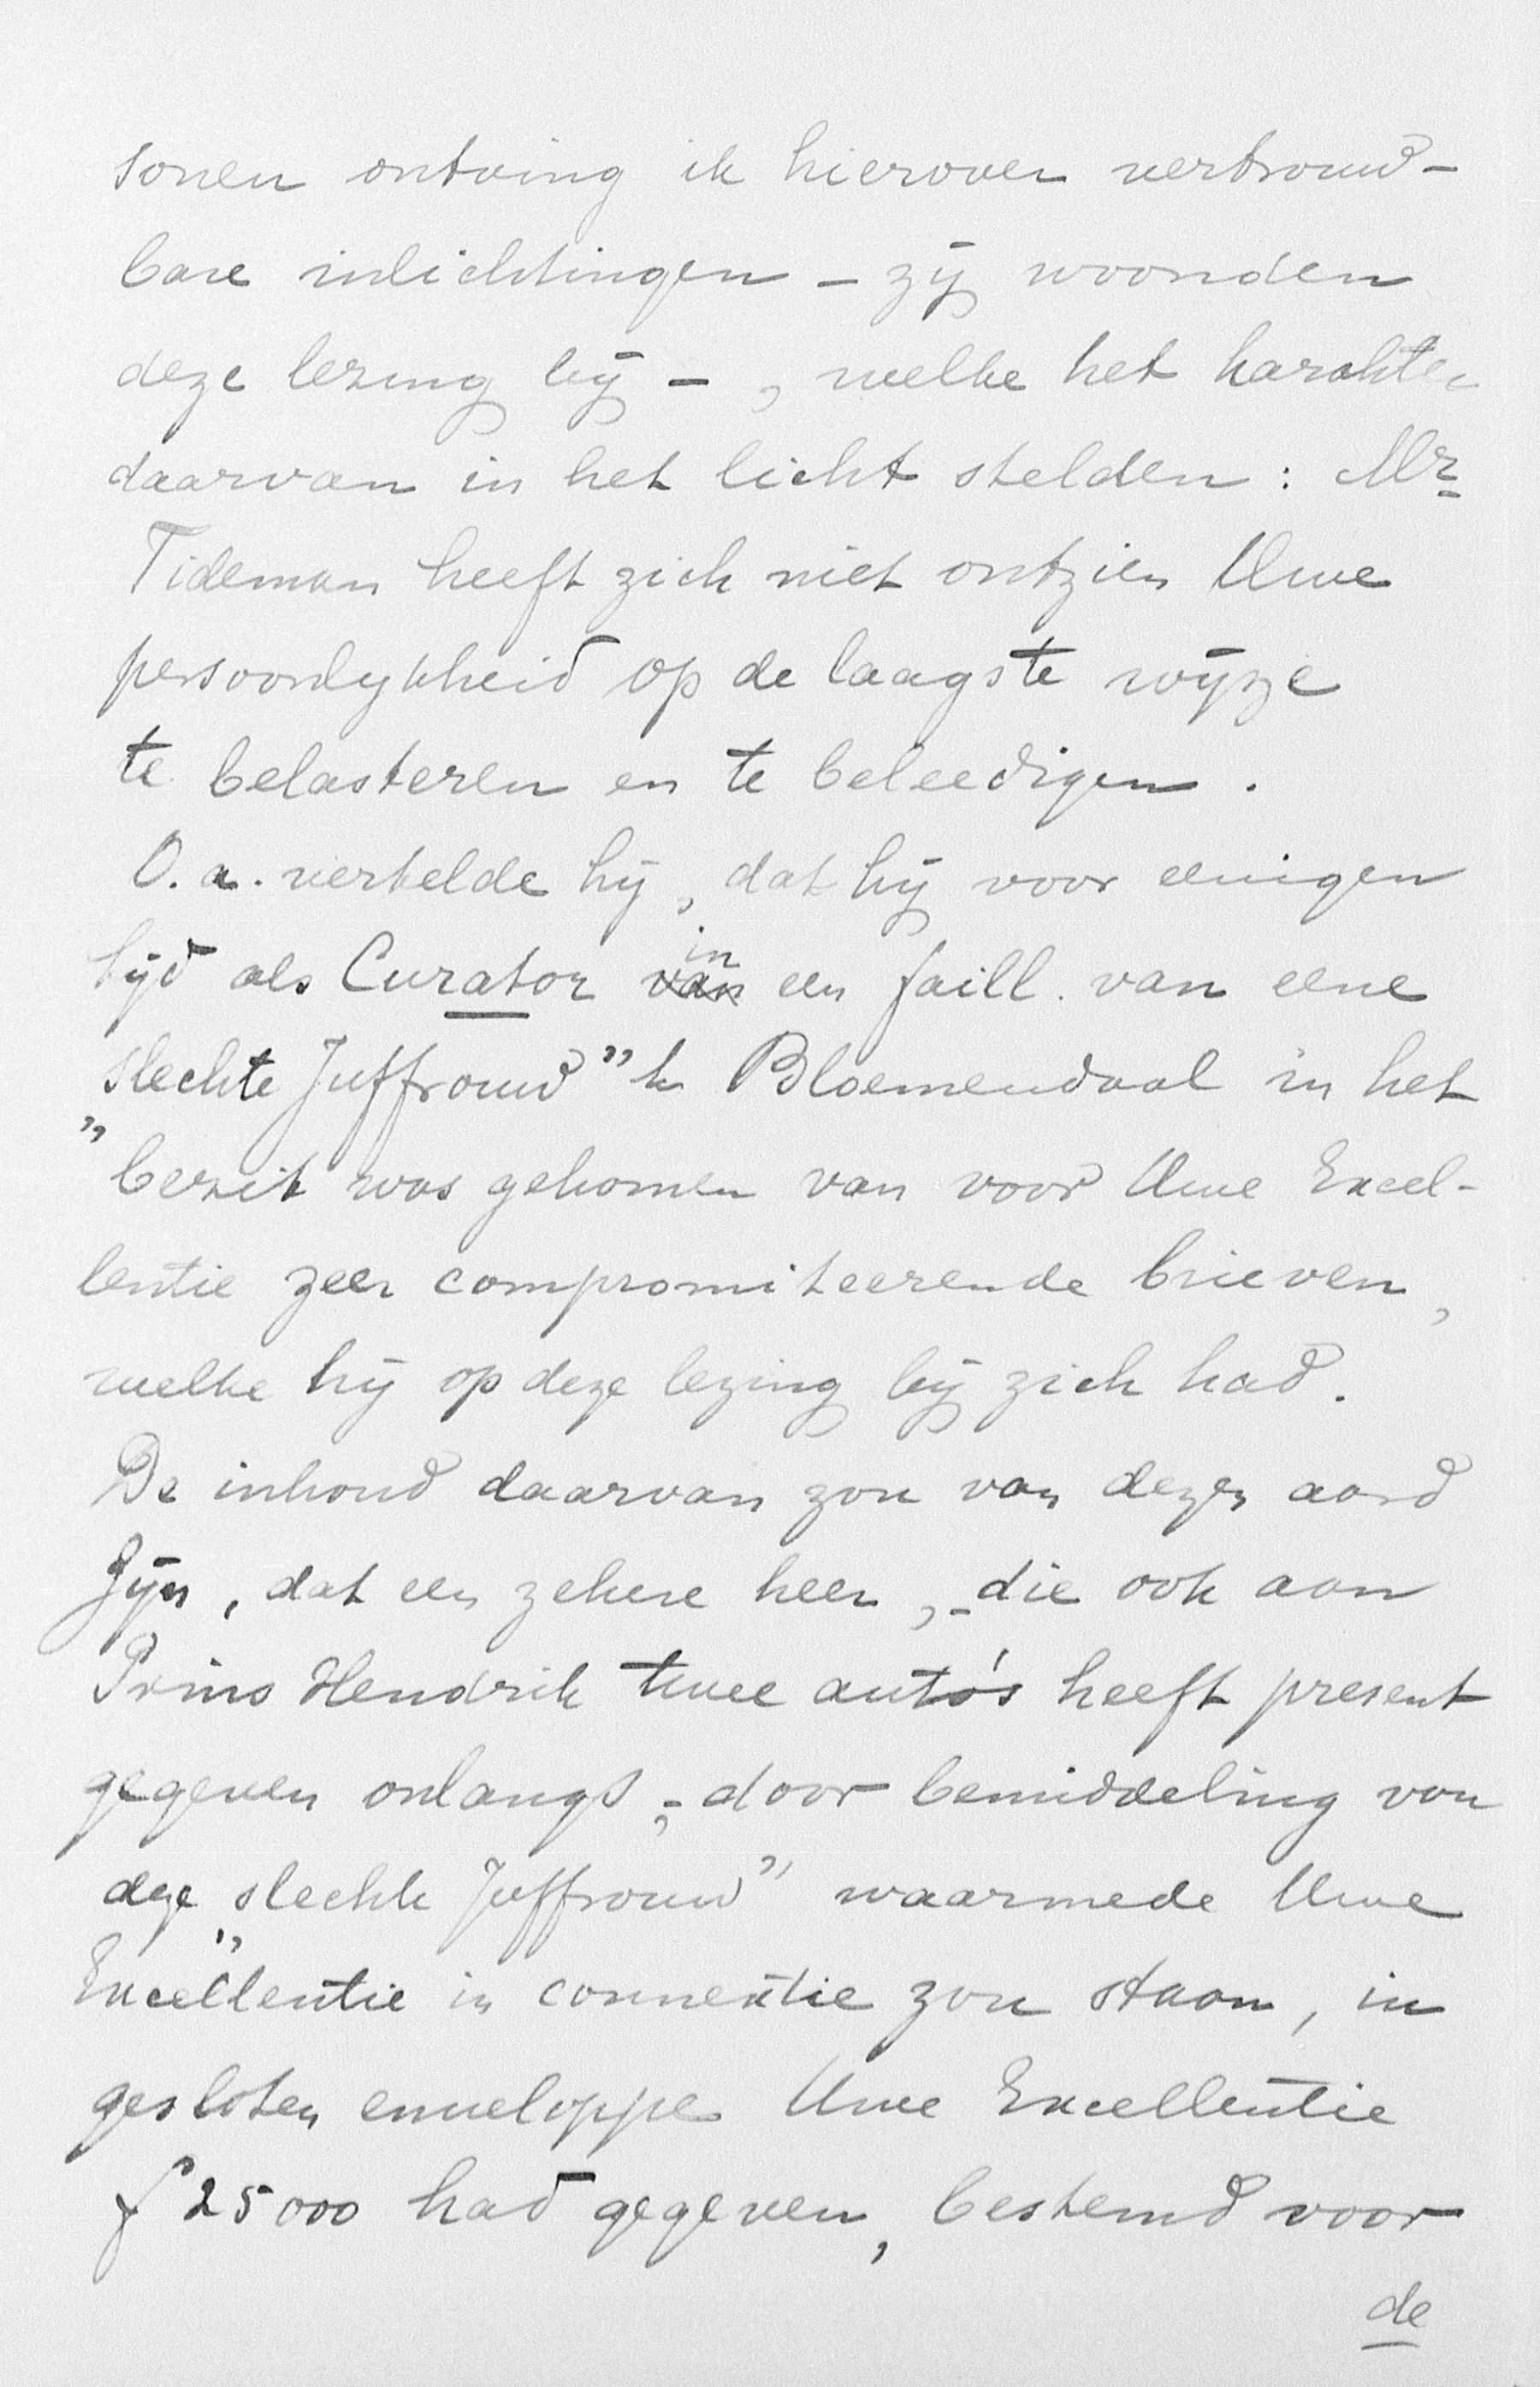 sonen ontving ik hierover vertrouw-
bare inlichtingen – zij woonden
deze lezing bij –, welke het karakter
daarvan in het licht stelden: Mr
Tideman heeft zich niet ontzien Uwe
persoonlijkheid op de laagste wijze
te belasteren en te beleedigen.
O.a. vertelde hij, dat hij voor eenigen
tijd als Curator van in een faill. van eene
„slechte Juffrouw” te Bloemendaal in het
bezit was gekomen van voor Uwe Excel-
lentie zeer compromiteerende brieven,
welke hij op deze lezing bij zich had.
De inhoud daarvan zou van dezen aard
zijn, dat een zekere heer, – die ook aan
Prins Hendrik twee auto's heeft present
gegeven onlangs, – door bemiddeling van
deze „slechte Juffrouw” waarmede Uwe
Excellentie in connextie zou staan, in
gesloten enveloppe Uwe Excellentie
f 25000 had gegeven, bestemd voor
de